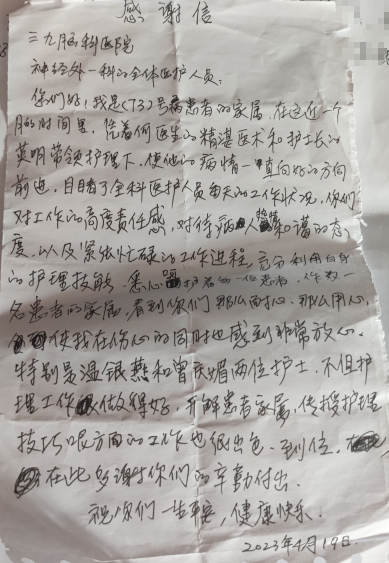 感谢信
三九脑科医院
神经外一科的全体医护人员:
你们好!我是(73)号病患者的家属,在这近一个
月的时间里,凭着何医生的精湛医术和护士长的
英明带领护理下,使他的病情一直向好的方向
前进,目睹了全科医护人员每天的工作状况,你们
对工作的高度责任感,对待病人 和蔼的态
度,以及紧张忙碌的工作进程,充分利用自身
的护理技能,悉心 护着每一位患者,作为一
名患者的家属,看到你们那么耐心,那么用心,
使我在伤心的同时也感到非常放心.
特别是温银燕和曾 媚两位护士,不但护
理工作做得好,开解患者家属,传授护理
技巧 方面的工作也很出色,到位,
在此多谢你们的辛勤付出.
祝你们一生平安,健康快乐.
2023年4月19日.